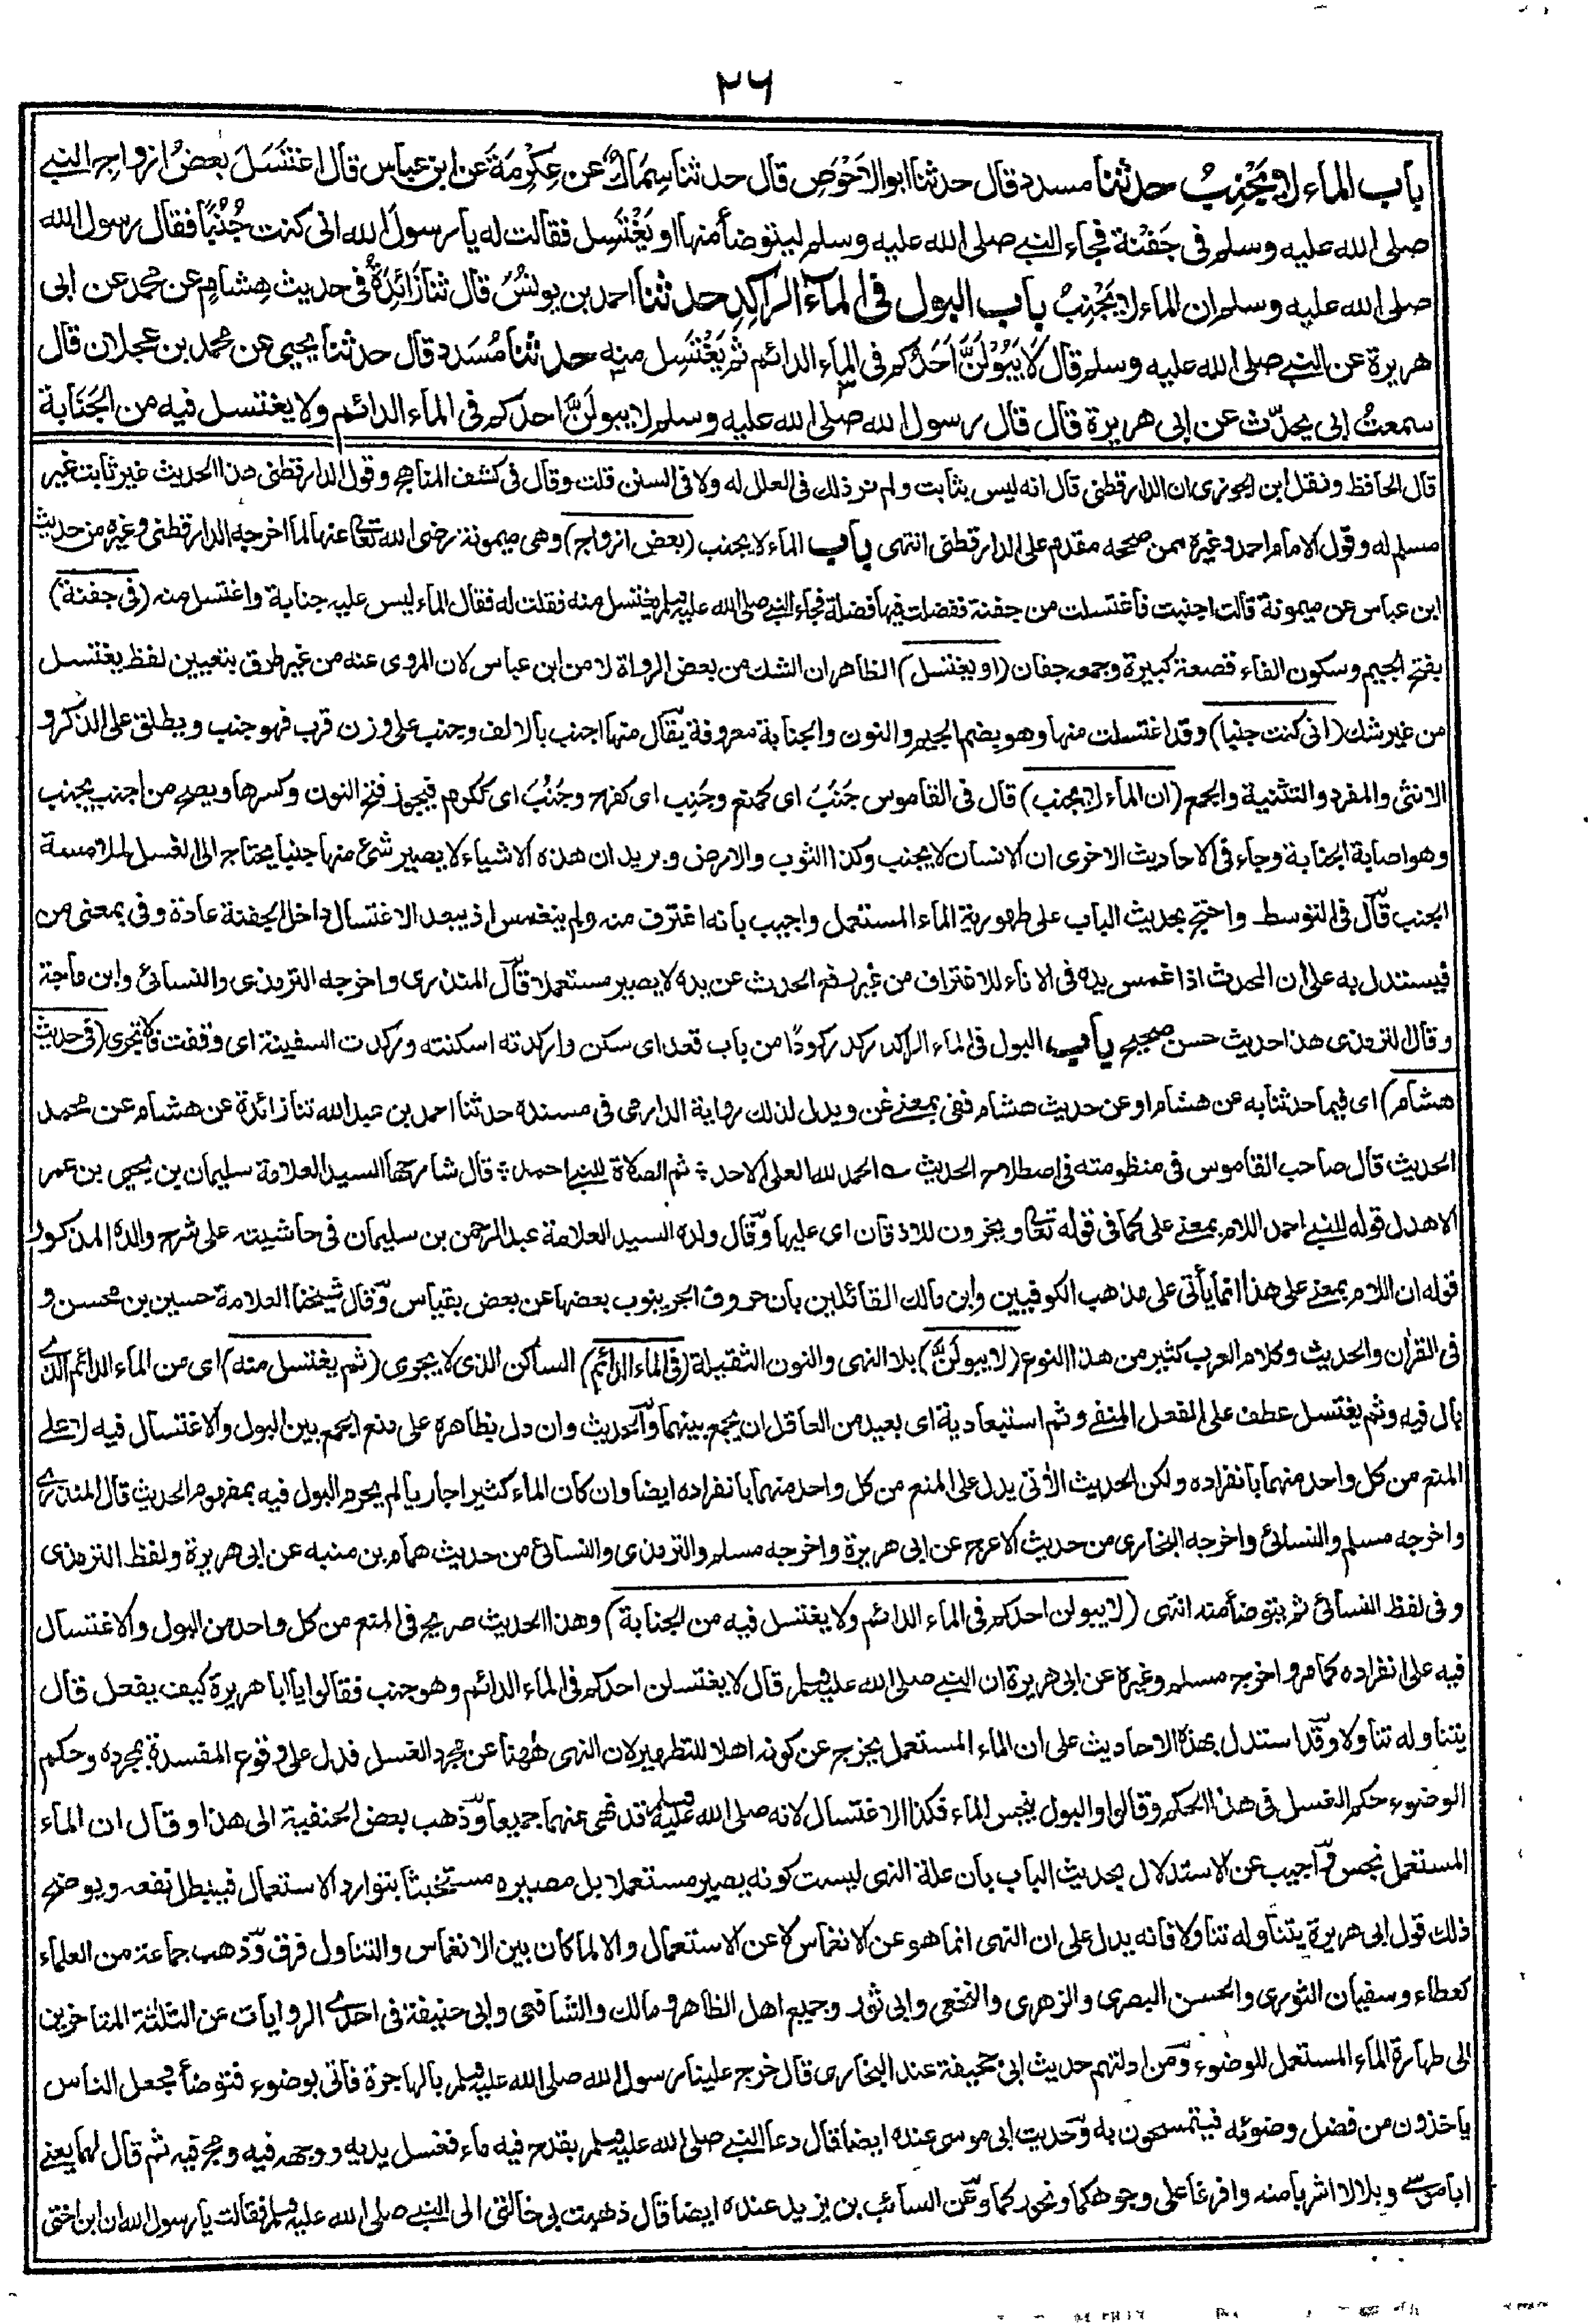 ٢٦
باب الماء لا يُجْنِبُ حدثنا مسدد قال حدثنا ابو الاَحْوَصِ قال حدثنا سِمَاكٌ عن عِكْرِمَةَ عن ابن عباس قال اغتَسَلَ بعضُ ازواجِ النبي
صلى الله عليه وسلم فى جَفْنة فجاء النبي صلى الله عليه وسلم ليتوضأ منها او يَغْتَسِل فقالت له يا رسول الله انى كنت جُنُبًا فقال رسول الله
صلى الله عليه وسلم ان الماء لا يُجْنِبُ باب البول فى الماء الراكِدِ حدثنا احمد بن يونسُ قال ثنا زَائِدَةُ فى حديث هِشامٍ عن محمد عن ابى
هريرة عن النبي صلى الله عليه وسلم قال لَا يَبُوْلَنَّ اَحَدُكم فى الماء الدائم ثم يَغْتَسِل منه حدثنا مُسَدد قال حدثنا يحيى عن محمد بن عجلان قال
سمعتُ ابى يحدّث عن ابى هريرة قال قال رسول الله صلى الله عليه وسلم لا يبولَنَّ احدكم فى الماء الدائم ولا يغتسل فيه من الجَنَابة
قال الحافظ ونقل ابن الجوزى ان الدارقطنى قال انه ليس بثابت ولم نر ذلك فى العلل له ولا فى السنن قلت وقال فى كشف المناهج وقول الدارقطنى هذا الحديث غير ثابت غير
مسلم له وقول الامام احمد وغيره ممن صححه مقدم على الدارقطنى انتهى باب الماء لا يجنب (بعض ازواج) وهى ميمونة رضى الله تعالى عنها لما اخرجه الدارقطنى وغيره من حديث
ابن عباس عن ميمونة قالت اجنبت فاغتسلت من جفنة ففضلت فيها فضلة فجاء النبي صلى الله عليه وسلم يغتسل منه فقلت له فقال الماء ليس عليه جنابة واغتسل منه (فى جفنة)
بفتح الجيم وسكون الفاء قصعة كبيرة وجمعه جفان (او يغتسل) الظاهر ان الشك من بعض الرواة لا من ابن عباس لان المروى عنه من غير طرق بتعيين لفظ يغتسل
من غير شك (انى كنت جنبا) وقد اغتسلت منها وهو بضم الجيم والنون والجنابة معروفة يقال منها اجنب بالالف وجنب على وزن قرب فهو جنب ويطلق على الذكر و
الانثى والمفرد والتثنية والجمع (ان الماء لا يجنب) قال فى القاموس جَنَبَ اى كمنع وجَنِب اى كفرح وجَنُبَ اى ككرم فيجوز فتح النون وكسرها ويصح من اجنب يجنب
وهو اصابة الجنابة وجاء فى الاحاديث الاخرى ان الانسان لا يجنب وكذا الثوب والارض ويريد ان هذه الاشياء لا يصير شئ منها جنبا يحتاج الى الغسل لملامسة
الجنب قال فى التوسط واحتج بحديث الباب على طهورية الماء المستعمل واجيب بانه اغترف منه ولم ينغمس اذ يبعد الاغتسال داخل الجفنة عادة وفى بمعنى من
فيستدل به على ان المحدث اذا غمس يده فى الاناء للاغتراف من غير رفع الحدث عن يده لا يصير مستعملا قال المنذرى واخرجه الترمذى والنسائى وابن ماجة
وقال الترمذى هذا حديث حسن صحيح باب البول فى الماء الراكد ركد ركودًا من باب قعد اى سكن واركدته اسكنته وركدت السفينة اى وقفت فلا تجرى (فى حديث
هشام) اى فيما حدثنا به عن هشام او عن حديث هشام ففى بمعنى عن ويدل لذلك رواية الدارمى فى مسنده حدثنا احمد بن عبد الله ثنا زائدة عن هشام عن محمد
الحديث قال صاحب القاموس فى منظومته فى اصطلاح الحديث ؎ الحمد لله العلى الاحد ؛ ثم الصلاة للنبي احمد ؛ قال شارحها السيد العلامة سليمان بن يحيى بن عمر
الاهدل قوله للنبي احمد اللام بمعنى على كما فى قوله تعالى ويخرون للاذقان اى عليها وقال ولده السيد العلامة عبد الرحمن بن سليمان فى حاشيته على شرح والده المذكور
قوله ان اللام بمعنى على هذا انما يأتى على مذهب الكوفيين وابن مالك القائلين بان حروف الجر ينوب بعضها عن بعض بقياس وقال شيخنا العلامة حسين بن محسن و
فى القرآن والحديث وكلام العرب كثير من هذا النوع (لا يبولَنَّ) بلا النهى والنون الثقيلة (فى الماء الدائم) الساكن الذى لا يجرى (ثم يغتسل منه) اى من الماء الدائم الذى
بال فيه وثم يغتسل عطف على الفعل المنفى وثم استبعادية اى بعيد من العاقل ان يجمع بينهما والحديث وان دل بظاهره على منع الجمع بين البول والاغتسال فيه لا على
المنع من كل واحد منهما بانفراده ولكن الحديث الآتى يدل على المنع من كل واحد منهما بانفراده ايضا وان كان الماء كثيرا جاريا لم يحرم البول فيه بمفهوم الحديث قال المنذرى
واخرجه مسلم والنسائى واخرجه البخارى من حديث الاعرج عن ابى هريرة واخرجه مسلم والترمذى والنسائى من حديث همام بن منبه عن ابى هريرة ولفظ الترمذى
وفى لفظ النسائى ثم يتوضأ منه انتهى (لا يبولن احدكم فى الماء الدائم ولا يغتسل فيه من الجنابة) وهذا الحديث صريح فى المنع من كل واحد من البول والاغتسال
فيه على انفراده كما مر واخرج مسلم وغيره عن ابى هريرة ان النبي صلى الله عليه وسلم قال لا يغتسلن احدكم فى الماء الدائم وهو جنب فقالوا يا ابا هريرة كيف يفعل قال
يتناوله تناولا وقد استدل بهذه الاحاديث على ان الماء المستعمل يخرج عن كونه اهلا للتطهير لان النهى ههنا عن مجرد الغسل فدل على وقوع المفسدة بمجرده وحكم
الوضوء حكم الغسل فى هذا الحكم وقالوا والبول ينجس الماء فكذا الاغتسال لانه صلى الله عليه وسلم قد نهى عنهما جميعا وذهب بعض الحنفية الى هذا وقال ان الماء
المستعمل نجس واجيب عن الاستدلال بحديث الباب بان علة النهى ليست كونه يصير مستعملا بل مصيره مستخبثا بتوارد الاستعمال فيبطل نفعه ويوضح
ذلك قول ابى هريرة يتناوله تناولا فانه يدل على ان النهى انما هو عن الانغماس لا عن الاستعمال والا لما كان بين الانغماس والتناول فرق وذهب جماعة من العلماء
كعطاء وسفيان الثورى والحسن البصرى والزهرى والنخعى وابى ثور وجميع اهل الظاهر ومالك والشافعى وابى حنيفة فى احدى الروايات عن الثلثة المتاخرين
الى طهارة الماء المستعمل للوضوء ومن ادلتهم حديث ابى جحيفة عند البخارى قال خرج علينا رسول الله صلى الله عليه وسلم بالهاجرة فاتى بوضوء فتوضأ فجعل الناس
ياخذون من فضل وضوئه فيتمسحون به وحديث ابى موسى عنده ايضا قال دعا النبي صلى الله عليه وسلم بقدح فيه ماء فغسل يديه ووجهه فيه ومج فيه ثم قال لهما يعنى
ابا موسى وبلالا اشربا منه وافرغا على وجوهكما ونحوركما وعن السائب بن يزيد عنده ايضا قال ذهبت بى خالتى الى النبي صلى الله عليه وسلم فقالت يا رسول الله ان ابن اختى